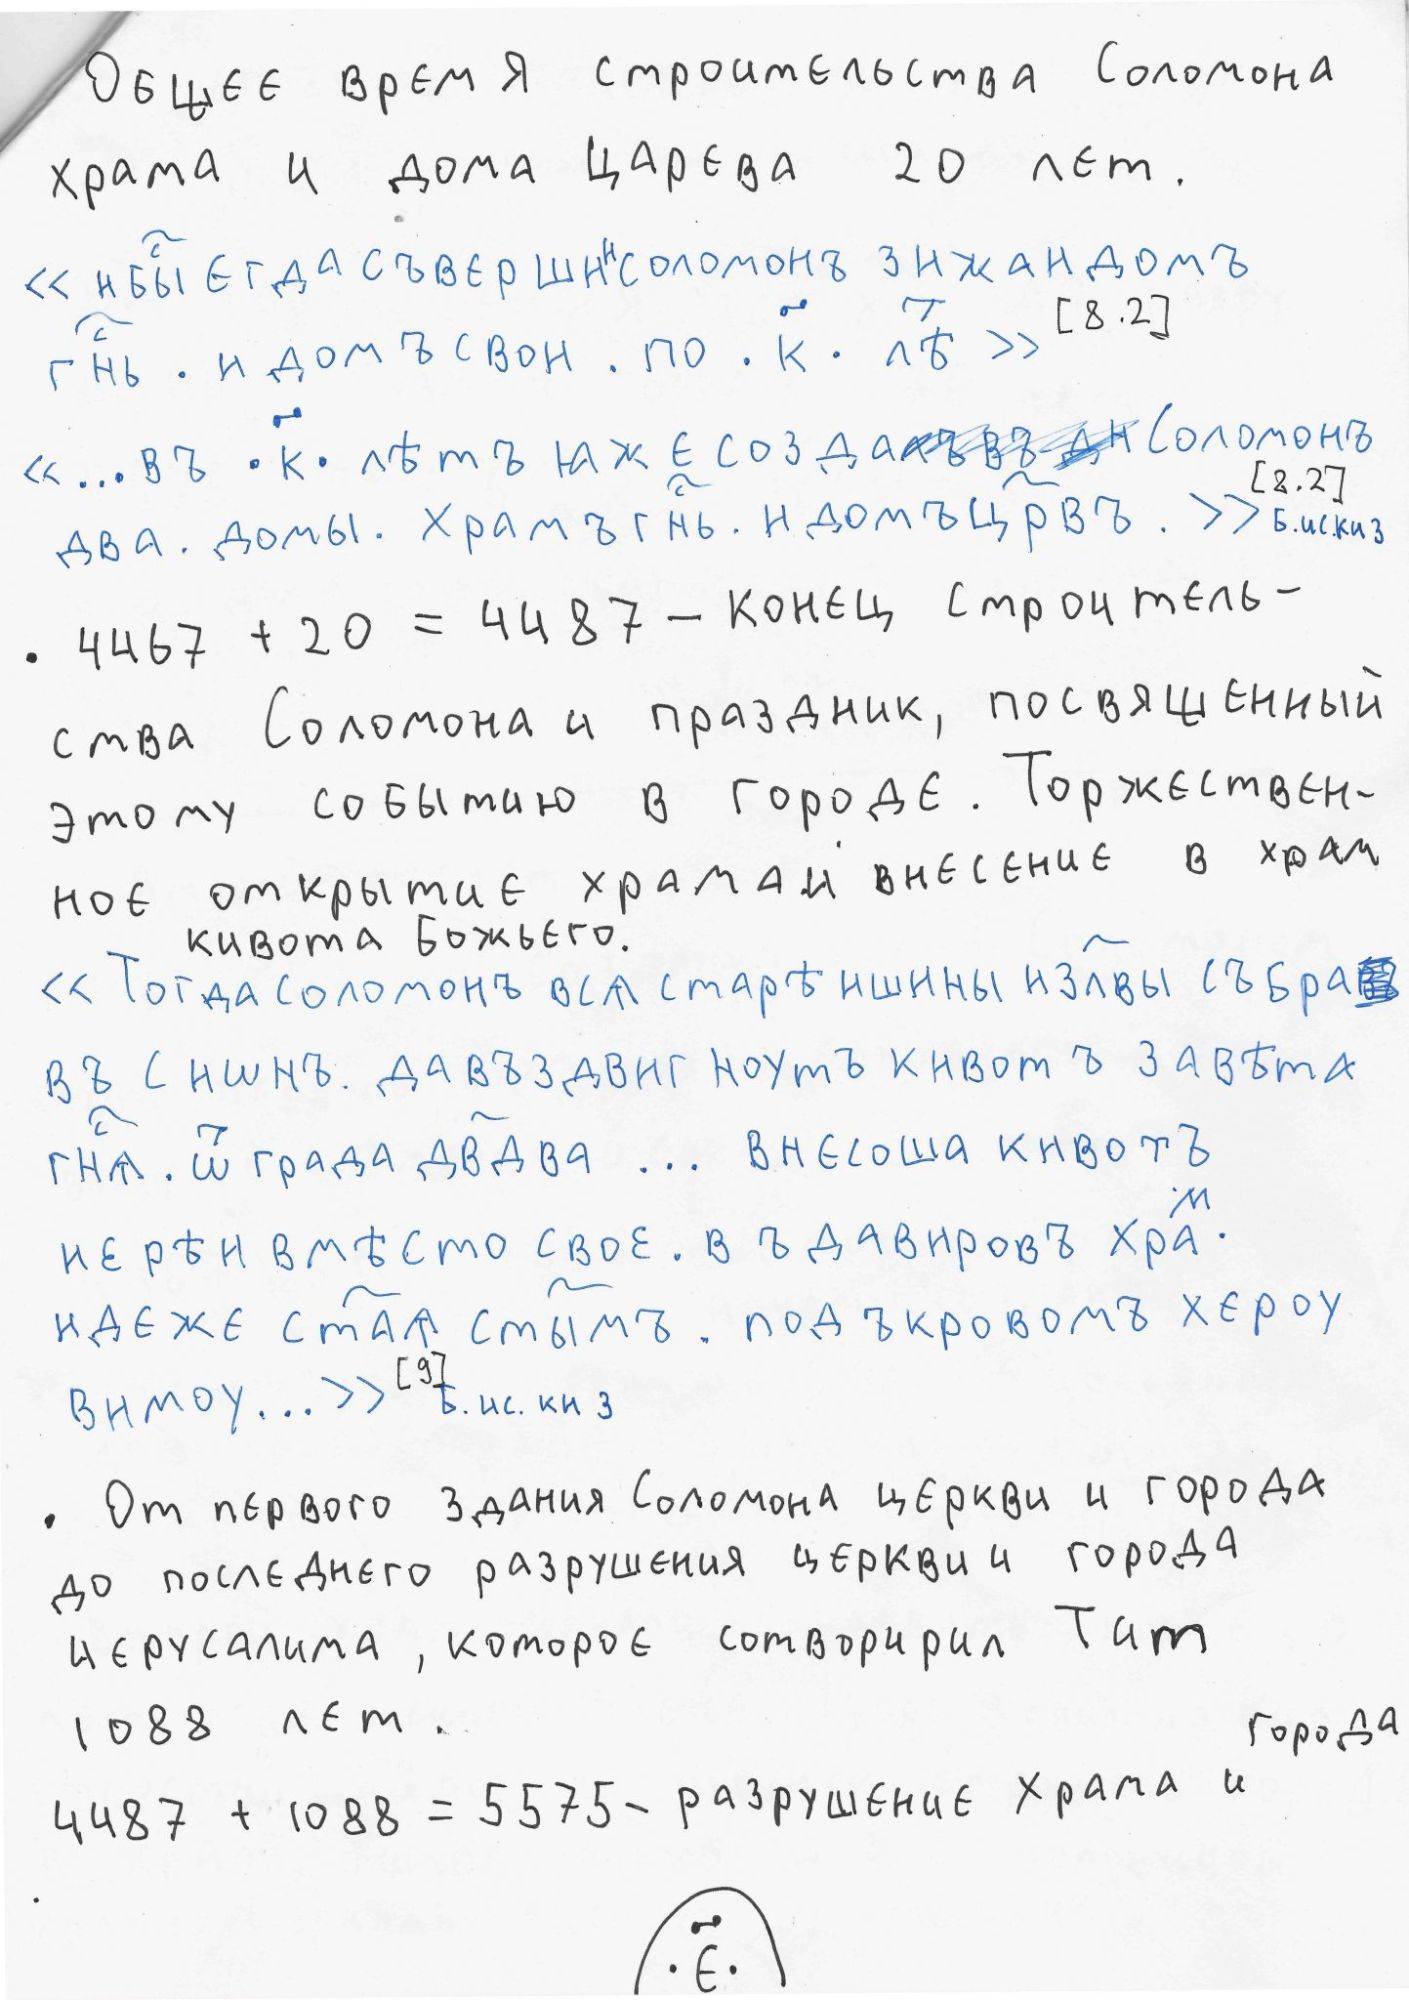 Общее время строительства Соломона
храма и дома царева 20 лет.
«нбы҃с егдасъвершнн соломонъ знжандомъ
гн҃сь. н домъсвон. по .к҃. лѣт» [8.2]
«...въ .к҃. лѣтъ ꙗже создa Соломонъ
два. домы. храмъгн҃сь. ндомъцр҃въ.» [8.2]
Б.ис.ки з
• 4467 + 20 = 4487 – конец строитель-
ства Соломона и праздник, посвященный
этому событию в городе. Торжествен-
ное открытие храма и внесение в храм
кивота Божьего.
«Тогдасоломонъ всѧ старѣншнны нзл҃вы събра
въ Сншнъ. давъздвнгноутъ кнвотъ завѣта
гн҃сѧ. ѿ града дв҃два ... внесоша кнвотъ
нерѣн вмѣсто свое. в ъдавнровъ храм.
ндеже ст҃аѧ ст҃ымъ. подъкровомъ хероу
внмоу...» [9] Б.ис.кн з
• От первого здания Соломона церкви и города
до последнего разрушения церкви и города
иерусалима, которое сотворирил Тит
1088 лет.
4487 + 1088 = 5575 – разрушение храма и города
.е҃.